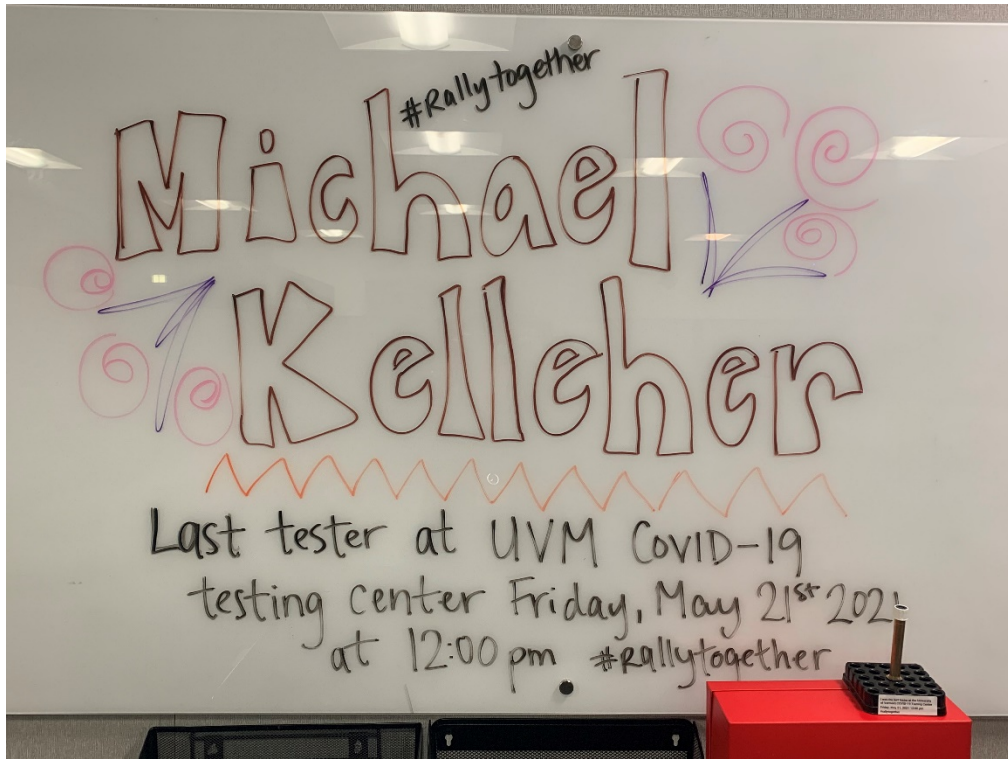 #Rallytogether
Michael
Kelleher
Last tester at UVM COVID-19
testing center Friday, May 21st 2021
at 12:00 pm #rallytogether